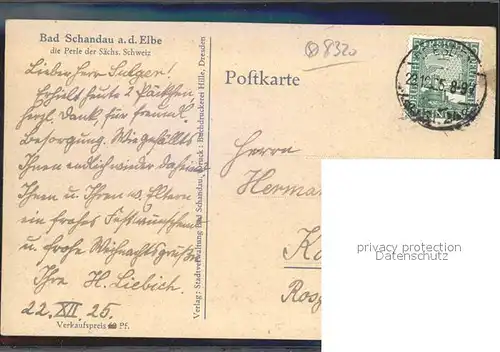 Bad Schandau a. d. Elbe
die Perle der Sächs. Schweiz
⊗8320
Lieber Herr Sulger!
Erhielt heute 2 Päckchen
herzl. Dank, für freundl.
Besorgung. Wie gefällts
Ihnen endlich wieder daheim,
Ihnen u. Ihren w. Eltern
ein frohes Fest wünschen
u. frohe Weihnachtsgrüße
Ihre H. Liebich.
22. XII. 25.
Verkaufspreis Pf.
Verlag: Stadtverwaltung Bad Schandau, Druck: Buchdruckerei Hille, Dresden
Postkarte
Herrn
Herma
K
Rosg
privacy protection
Datenschutz